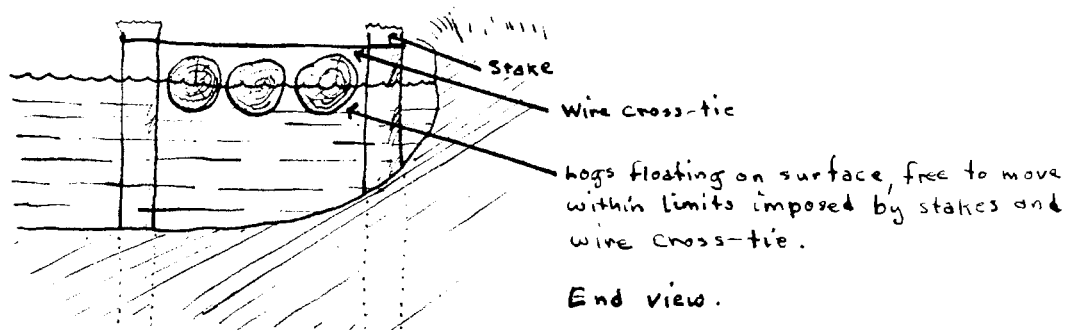 Stake
Wire cross-tie
Logs floating on surface, free to move
within limits imposed by stakes and
wire cross-tie.
End view.